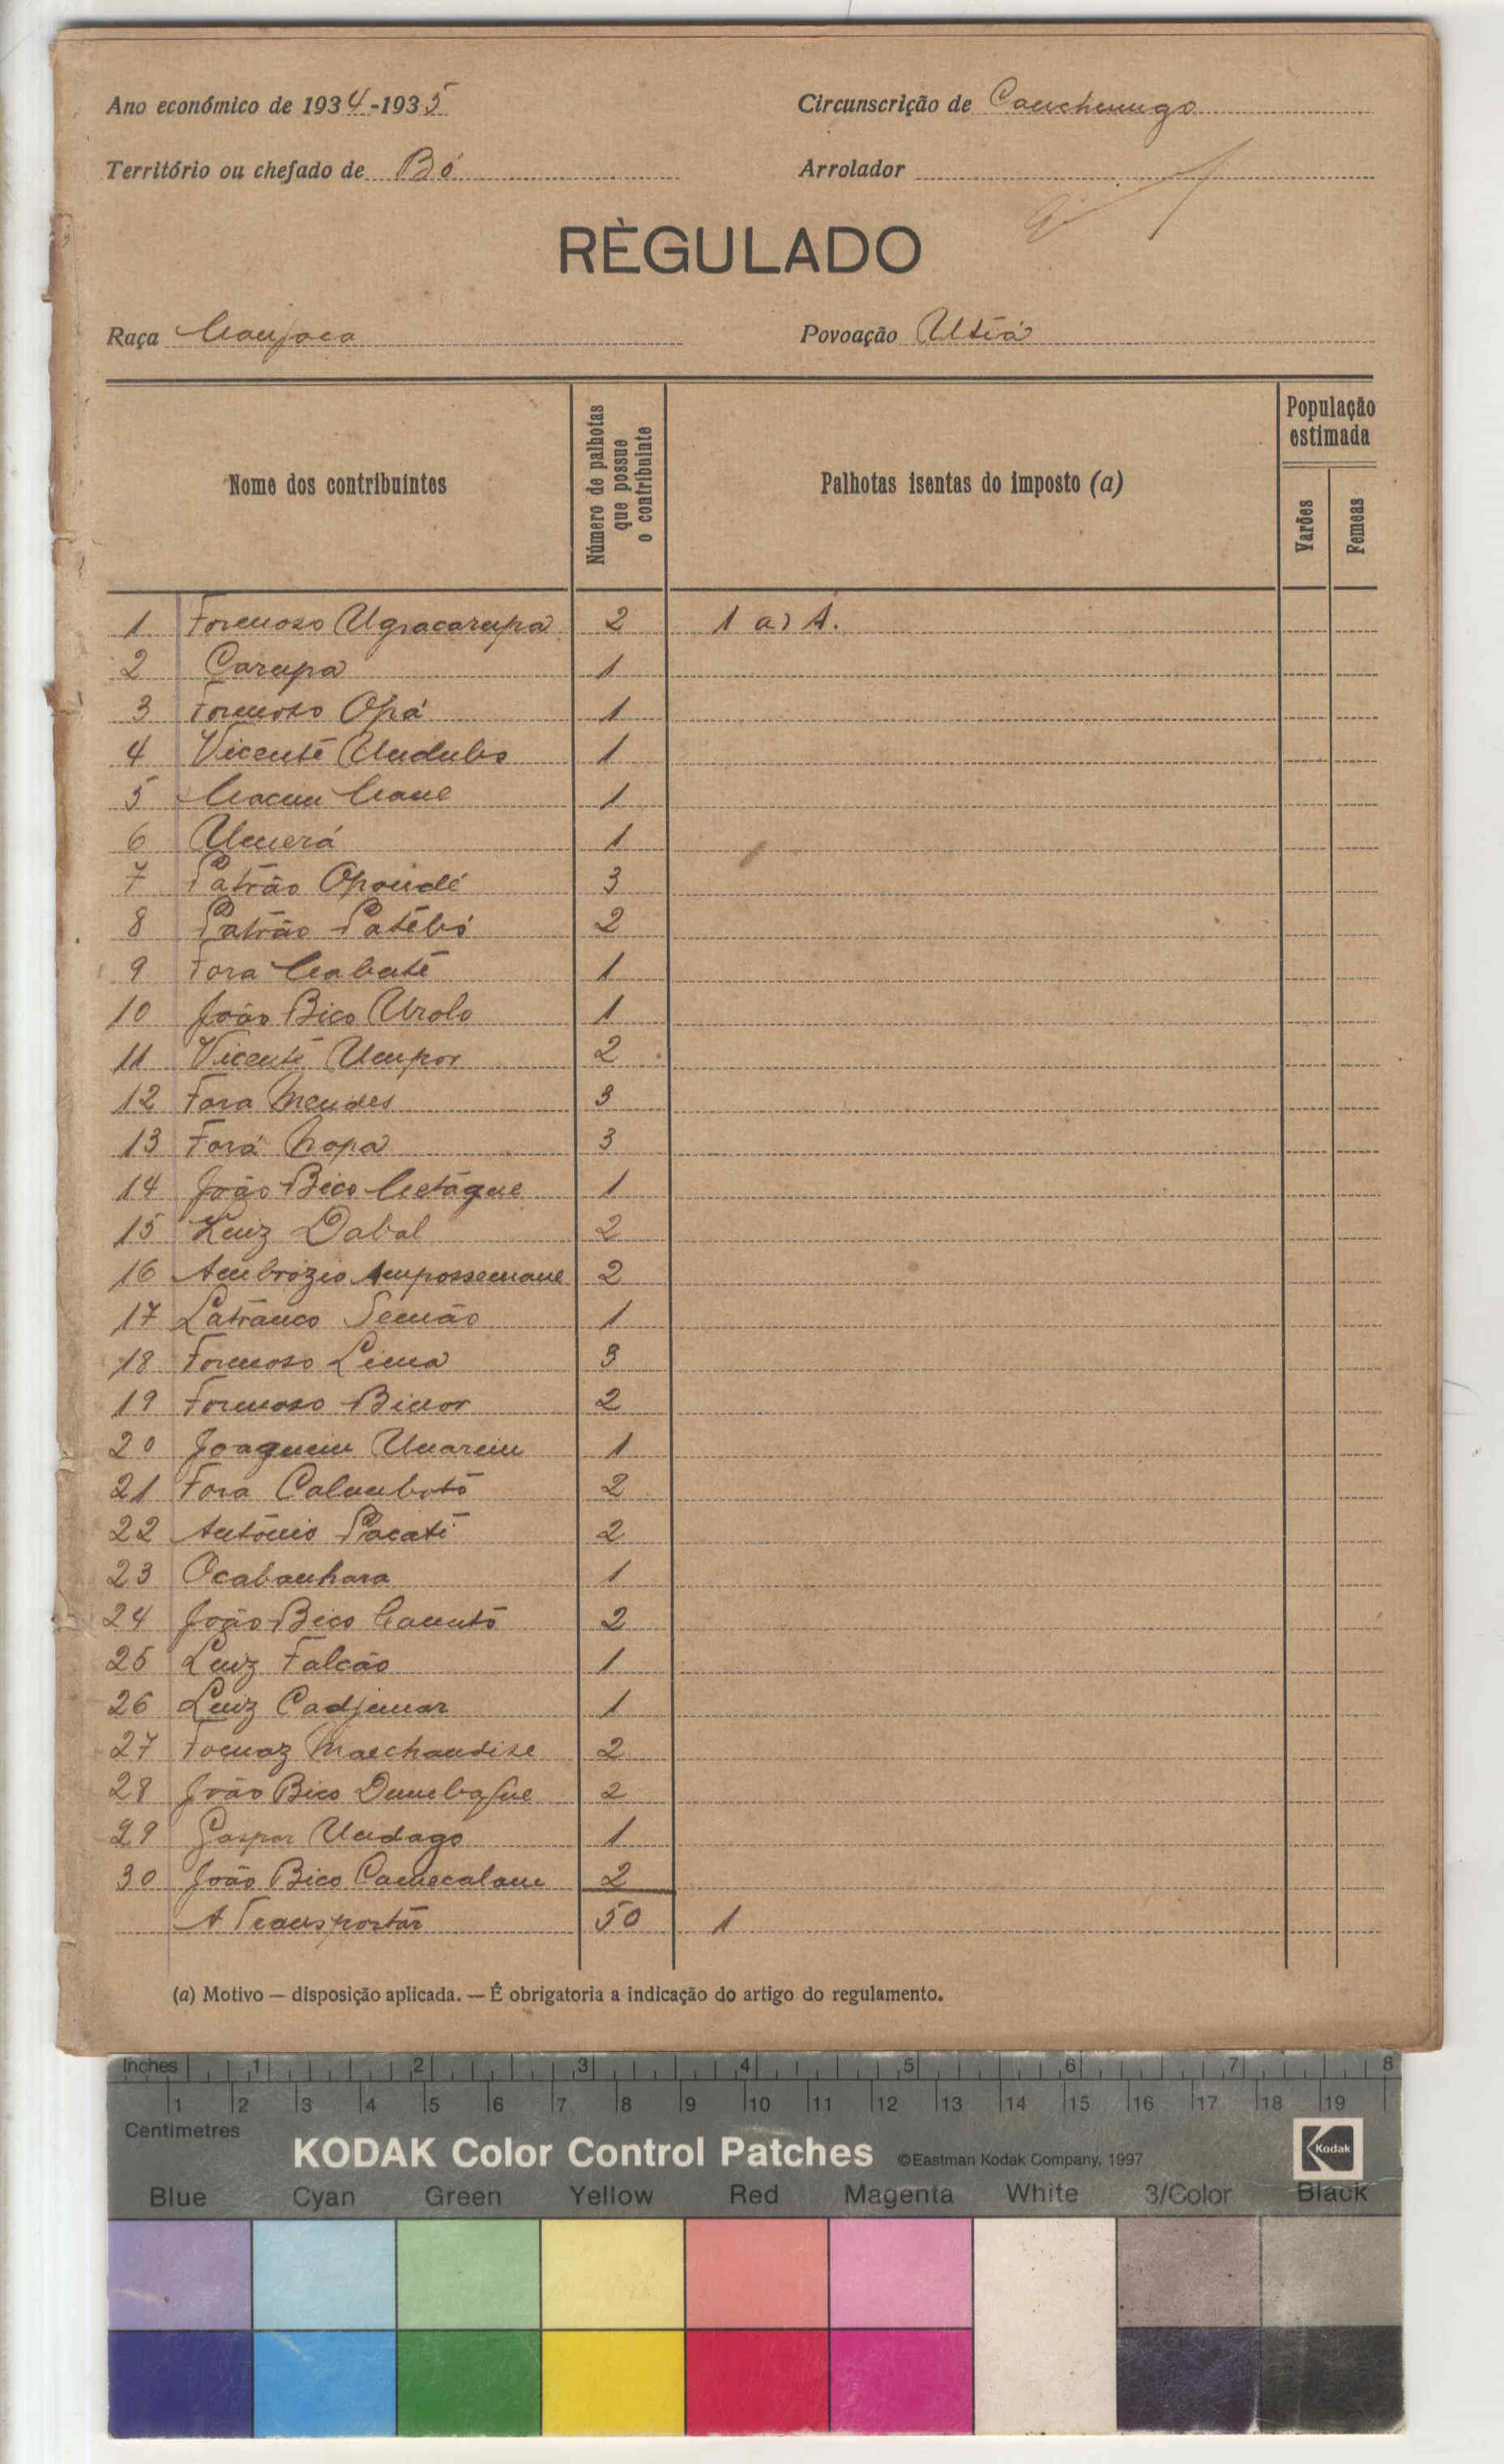 Ano económico de 1934-1935
Circunscrição de Canchungo
Território ou chefado de Bó
Arrolador
RÈGULADO
Raça Manjaca
Povoação Utiá
Nome dos contribuintes
Número de palhotas que possue o contribuinte
Palhotas isentas do imposto (a)
População estimada
Varões
Femeas
1 Formoso 2 1 a) 1.
2 Carupa 1
3 Formoso Opá 1
4 Vicente Undubo 1
5 Macun Mane 1
6 Umerá 1
7 Patrão 3
8 Patrão Patêbó 2
9 Fora 1
10 João Bico Urolo 1
11 Vicente Umpor 2
12 Fora Mendes 3
13 Forá 3
14 João Bico 1
15 Luiz Dabal 2
16 Ambrózio 2
17 1
18 Formoso Lima 3
19 Formoso 2
20 Joaquim 1
21 Fora 2
22 António Pacati 2
23 Ocabanhara 1
24 João Bico 2
25 Luiz Falcão 1
26 Luiz 1
27 2
28 João Bico 2
29 Gaspar Undago 1
30 João Bico 2
A Transportar 50 1
(a) Motivo — disposição aplicada. — É obrigatoria a indicação do artigo do regulamento.
Inches 1 2 3 4 5 6 7 8
1 2 3 4 5 6 7 8 9 10 11 12 13 14 15 16 17 18 19
Centimetres
KODAK Color Control Patches ©Eastman Kodak Company, 1997 Kodak
Blue Cyan Green Yellow Red Magenta White 3/Color Black